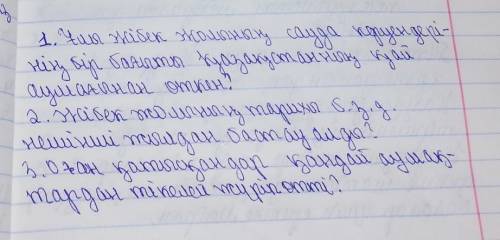 1. Ұлы жібек жолының сауда керуендері-
нің бір бағыты Қазақстанның қай
аумағынан өткен?
2. Жібек жолының тарихы б.з.д.
нешінші жылдан бастау алды?
3. Оған қатысқандар қандай аумақ-
тардан тікелей жүріп өтті?